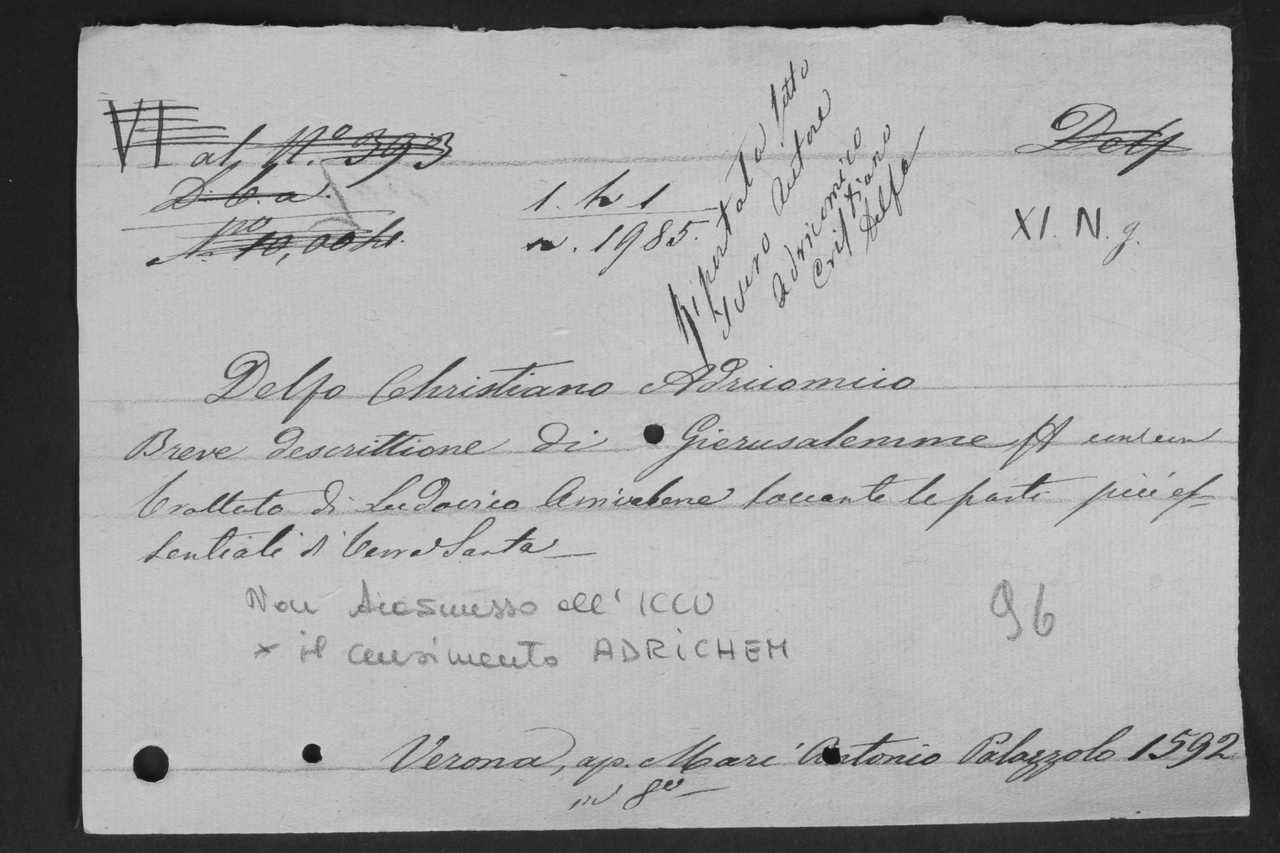 VI al N.º 393
D. b. a.
N.º 10,00 h.
1. h 1
n. 1985.
Riportata sotto
il vero Autore
Adricomico
Cristiano
Delfo
Delf
XI. N. g.
Delfo Christiano Adricomico
Breve descrittione di Gierusalemme con un
trattato di Ludovico Arrivabene toccante le parti più es-
sentiali di Terra Santa
Non trasmesso all' ICCU
x il censimento ADRICHEM
96
Verona, ap. Marc' Antonio Palazzolo 1592
in 8º